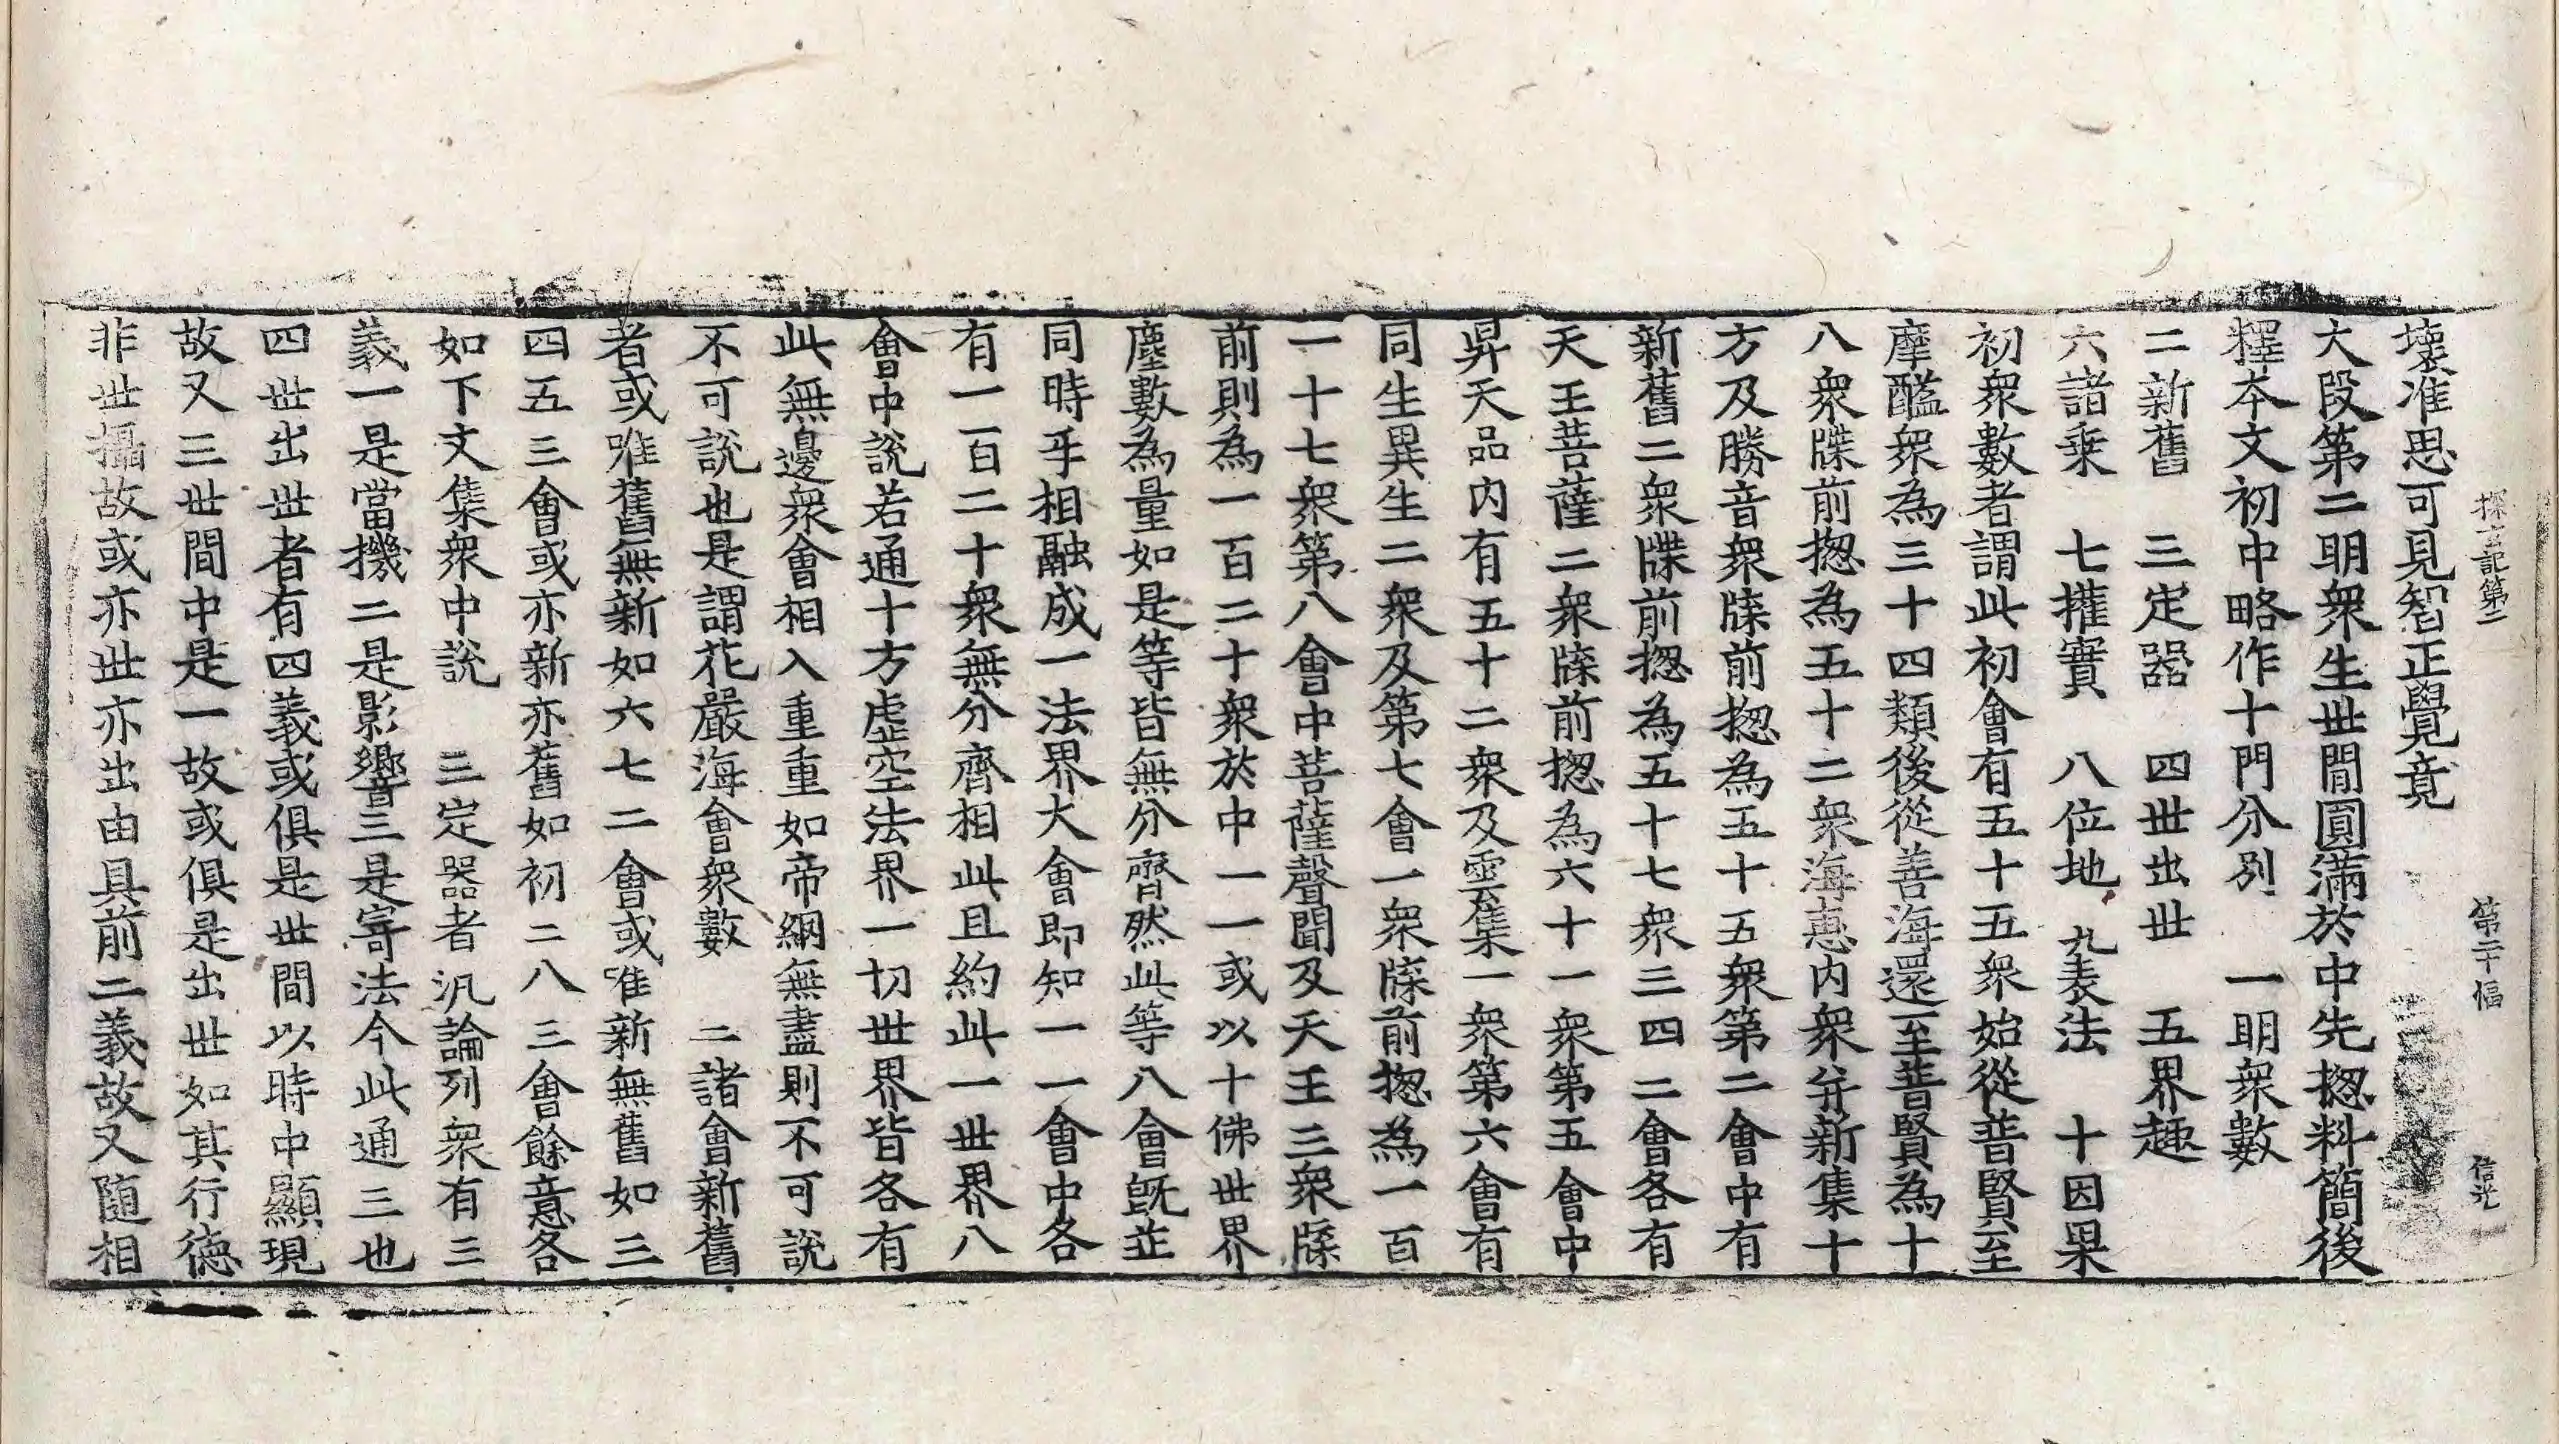 探玄記第二　第二十幅　信光
壞准思可見智正覺竟
大段第二明衆生世閒圓滿於中先揔料簡後
釋本文初中略作十門分別　一明衆數
二新舊　三定器　四世出世　五界趣
六諸乗　七攉實　八位地　九表法　十因果
初衆數者謂此初會有五十五衆始從普賢至
摩醯衆為三十四類後從善海還至普賢為十
八衆牒前揔為五十二衆海惠内衆并新集十
方及勝音衆牒前揔為五十五衆第二會中有
新舊二衆牒前揔為五十七衆三四二會各有
天王菩薩二衆牒前揔為六十一衆第五會中
昇天品内有五十二衆及雲集一衆第六會有
同生異生二衆及第七會一衆牒前揔為一百
一十七衆第八會中菩薩聲聞及天王三衆牒
前則為一百二十衆於中一一或以十佛世界
塵數為量如是等皆無分齊然此等八會旣並
同時乎相融成一法界大會即知一一會中各
有一百二十衆無分齊相此且約此一世界八
會中說若通十方虛空法界一切世界皆各有
此無邊衆會相入重重如帝網無盡則不可說
不可說也是謂花嚴海會衆數　二諸會新舊
者或唯舊無新如六七二會或唯新無舊如三
四五三會或亦新亦舊如初二八三會餘意各
如下文集衆中說　三定器者汎論列衆有三
義一是當機二是影響三是寄法今此通三也
四世出世者有四義或俱是世間以時中顯現
故又三世間中是一故或俱是出世如其行德
非世攝故或亦世亦出由具前二義故又隨相